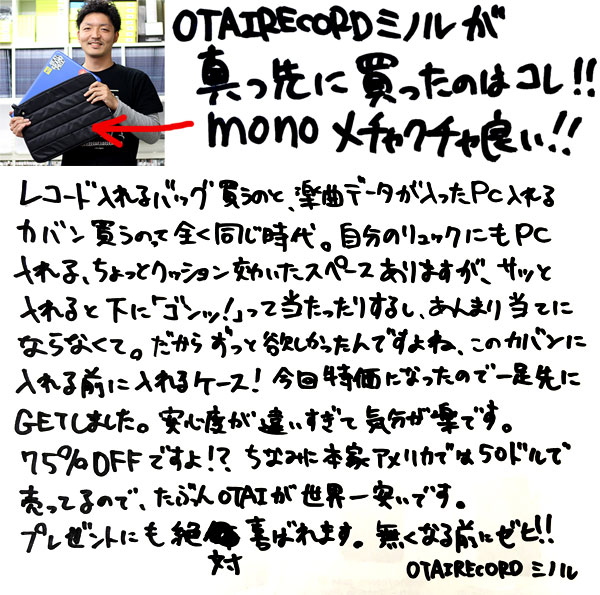 OTAIRECORDミノルが
真っ先に買ったのはコレ!!
mono メチャクチャ良い!!
レコード入れるバッグ買うのと、楽曲データが入ったPC入れる
カバン買うのって全く同じ時代。自分のリュックにもPC
入れる、ちょっとクッション効いたスペースありますが、サッと
入れると下に「ゴンッ!」って当たったりするし、あんまり当てに
ならなくて。だからずっと欲しかったんですよね、このカバンに
入れる前に入れるケース!今回特価になったので一足先に
GETしました。安心度が違いすぎて気分が楽です。
75%OFFですよ!?ちなみに本家アメリカでは50ドルで
売ってるので、たぶんOTAIが世界一安いです。
プレゼントにも絶対喜ばれます。無くなる前にゼヒ!!
OTAIRECORD ミノル